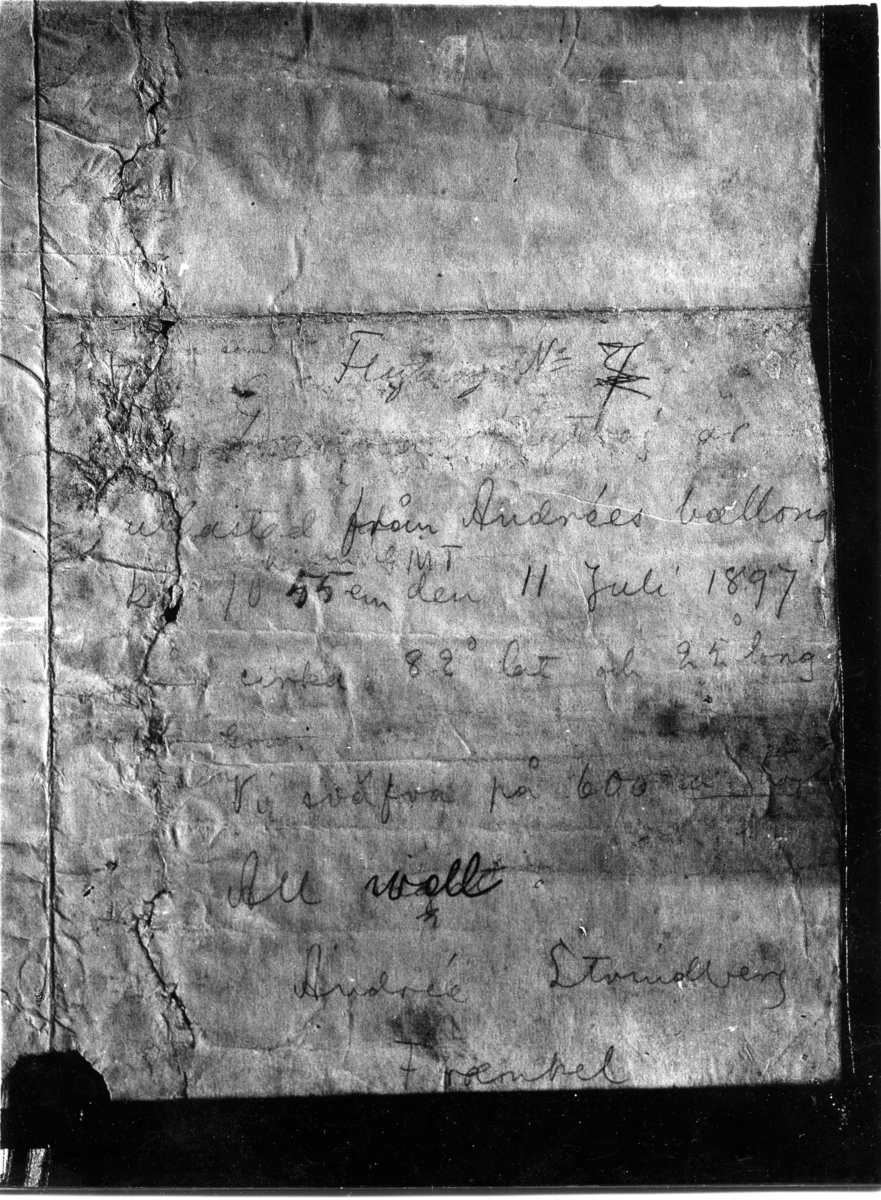 Flytboj Nº 7
är
utkastad från Andrées ballong
GMT
kl 10 55 em den 11 Juli 1897
cirka 82° lat och 25° long
Vi sväfva på 600 m höjd
All well.
Andrée Strindberg
Frænkel